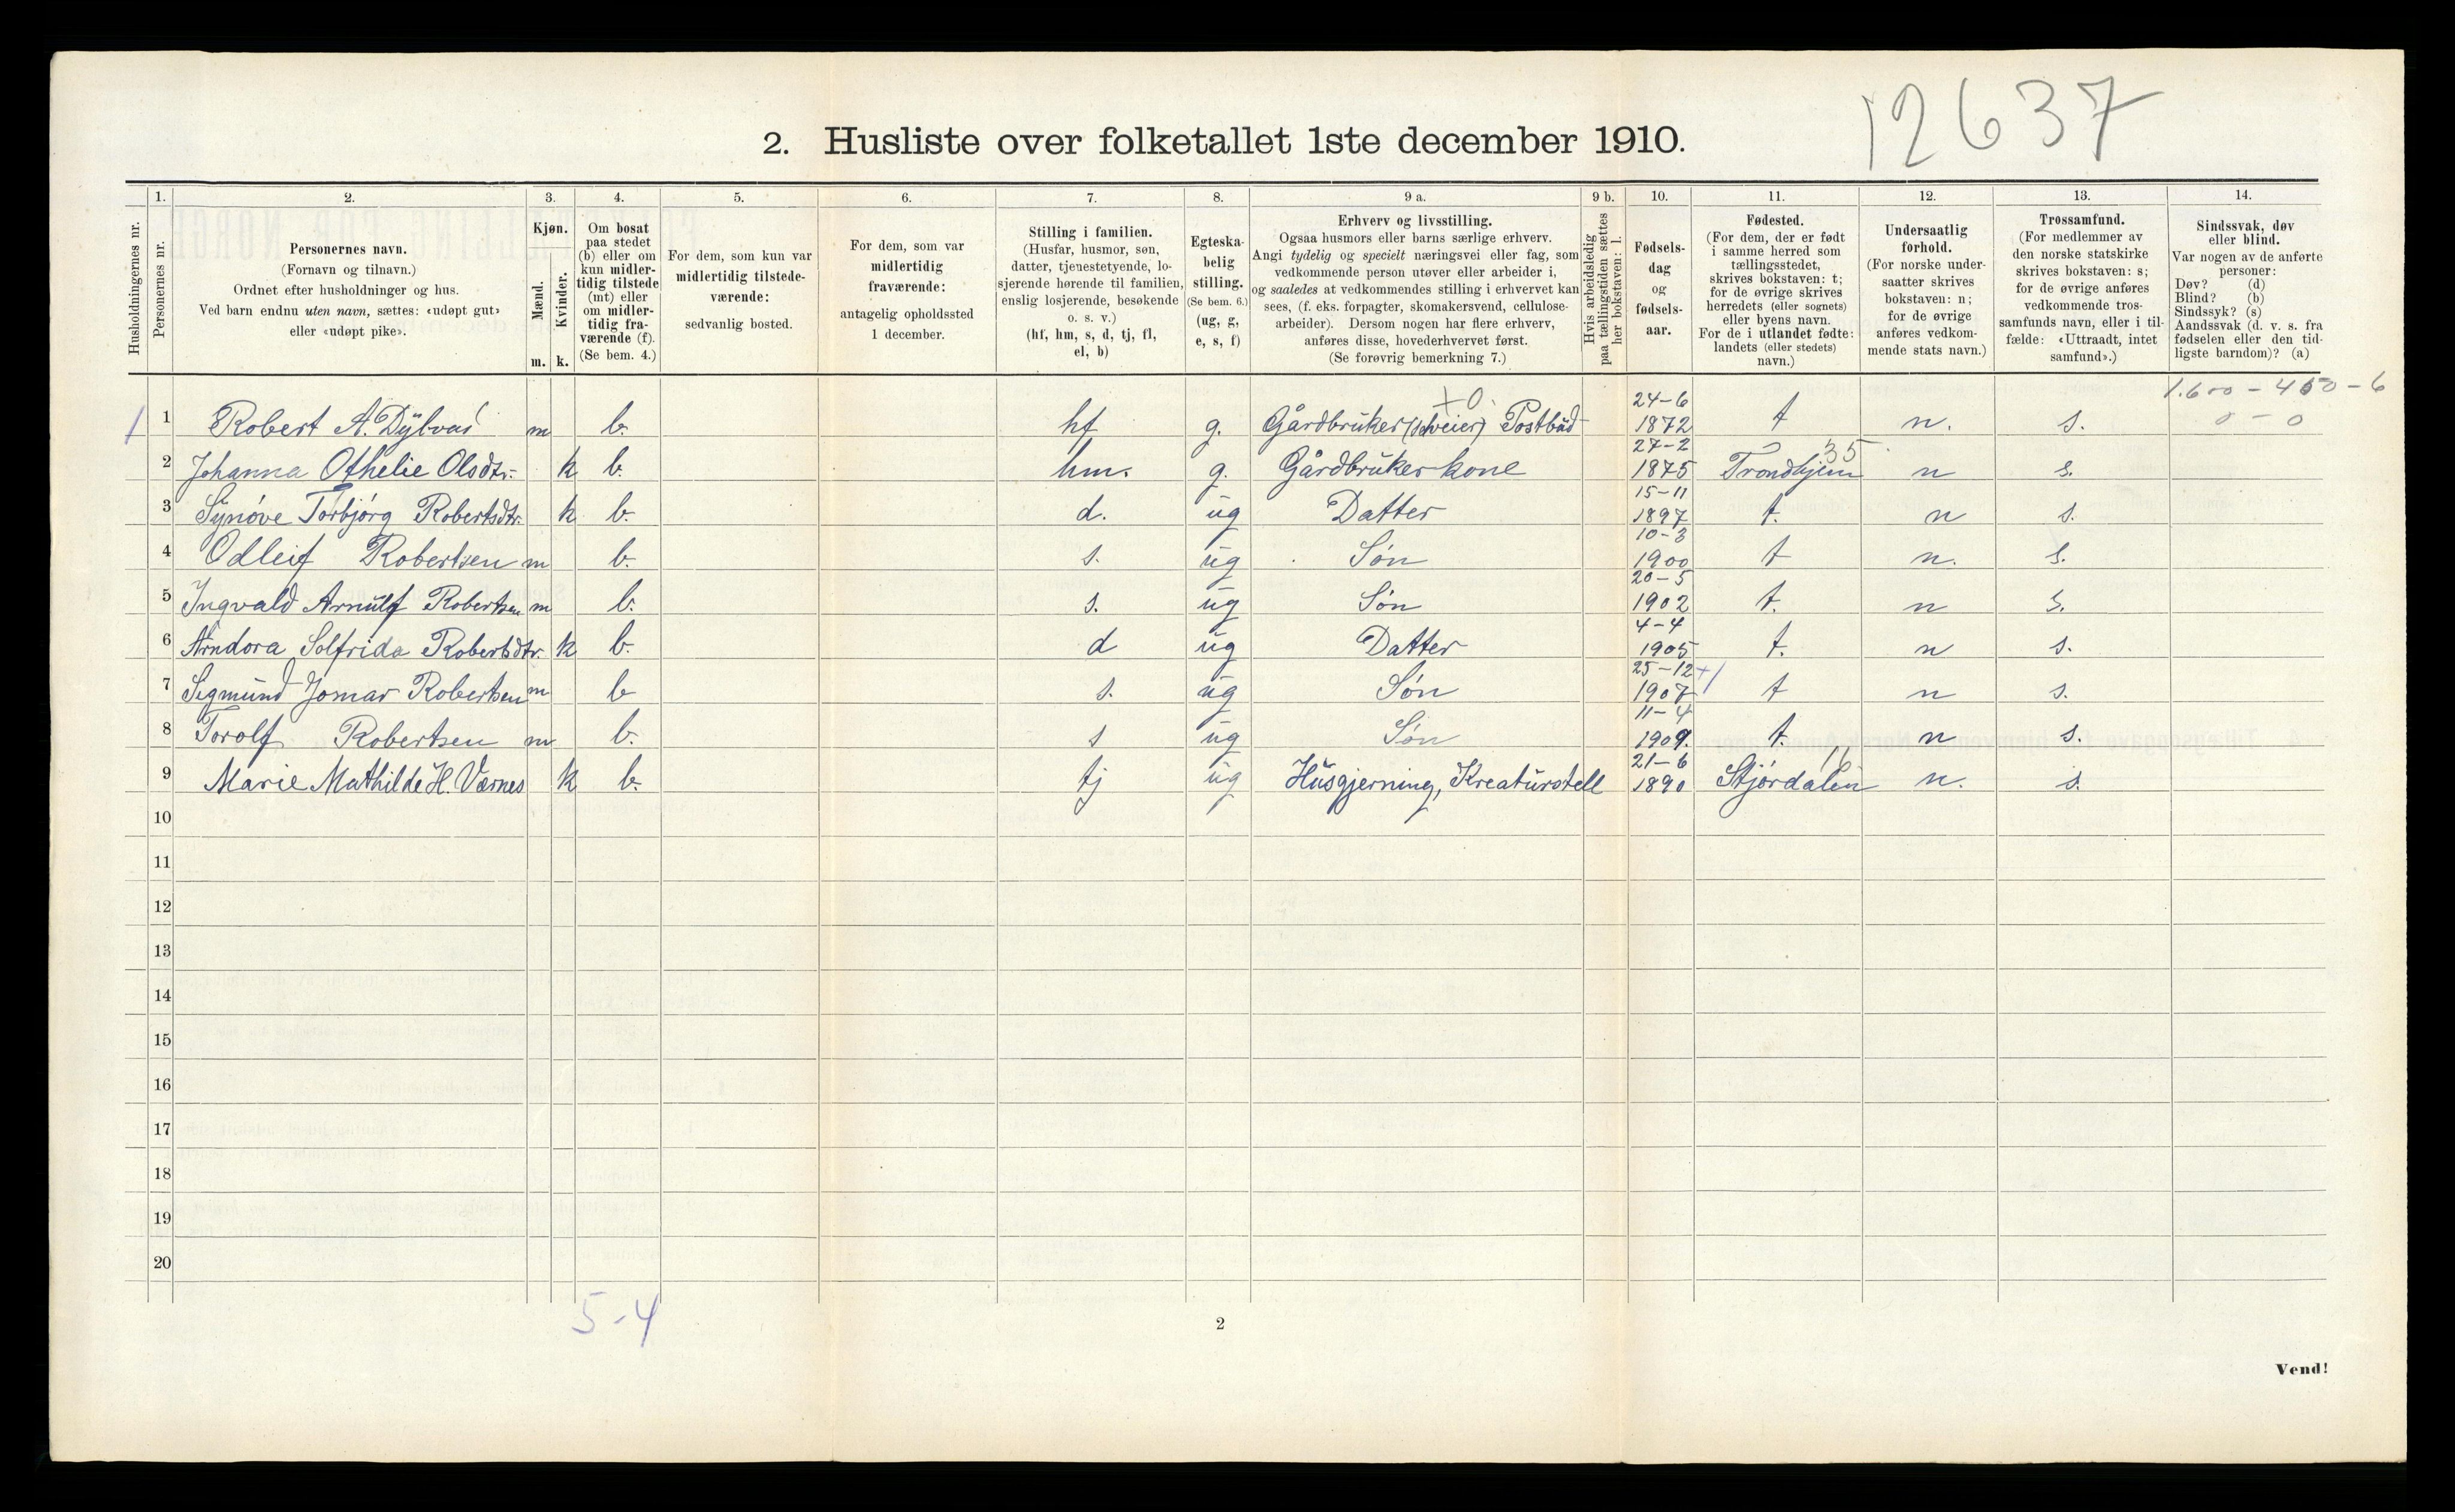 12637
2. Husliste over folketallet 1ste december 1910.
Husholdningernes nr.
1.
Personernes nr.
2.
Personernes navn.
(Fornavn og tilnavn.)
Ordnet efter husholdninger og hus.
Ved barn endnu uten navn, sættes: «udøpt gut»
eller «udøpt pike».
3.
Kjøn.
Mænd.
m.
Kvinder.
k.
4.
Om bosat
paa stedet
(b) eller om
kun midler-
tidig tilstede
(mt) eller
om midler-
tidig fra-
værende (f).
(Se bem. 4.)
5.
For dem, som kun var
midlertidig tilstede-
værende:
sedvanlig bosted.
6.
For dem, som var
midlertidig
fraværende:
antagelig opholdssted
1 december.
7.
Stilling i familien.
(Husfar, husmor, søn,
datter, tjenestetyende, lo-
sjerende hørende til familien,
enslig losjerende, besøkende
o. s. v.)
(hf, hm, s, d, tj, fl,
el, b)
8.
Egteska-
belig
stilling.
(Se bem. 6.)
(ug, g,
e, s, f)
9 a.
Erhverv og livsstilling.
Ogsaa husmors eller barns særlige erhverv.
Angi tydelig og specielt næringsvei eller fag, som
vedkommende person utøver eller arbeider i,
og saaledes at vedkommendes stilling i erhvervet kan
sees, (f. eks. forpagter, skomakersvend, cellulose-
arbeider). Dersom nogen har flere erhverv,
anføres disse, hovederhvervet først.
(Se forøvrig bemerkning 7.)
9 b.
Hvis arbeidsledig
paa tællingstiden sættes
her bokstaven: l.
10.
Fødsels-
dag
og
fødsels-
aar.
11.
Fødested.
(For dem, der er født
i samme herred som
tællingsstedet,
skrives bokstaven: t;
for de øvrige skrives
herredets (eller sognets)
eller byens navn.
For de i utlandet fødte:
landets (eller stedets)
navn.)
12.
Undersaatlig
forhold.
(For norske under-
saatter skrives
bokstaven: n;
for de øvrige
anføres vedkom-
mende stats navn.)
13.
Trossamfund.
(For medlemmer av
den norske statskirke
skrives bokstaven: s;
for de øvrige anføres
vedkommende tros-
samfunds navn, eller i til-
fælde: «Uttraadt, intet
samfund».)
14.
Sindssvak, døv
eller blind.
Var nogen av de anførte
personer:
Døv? (d)
Blind? (b)
Sindssyk? (s)
Aandssvak (d. v. s. fra
fødselen eller den tid-
ligste barndom)? (a)
1.600 - 400 - 6
0 - 0
+0.
1 1 Robert A. Dylvas m b. hf g. Gårdbruker (selveier) Postbud 24-6 1872 t n. s.
2 Johanna Othelie Olsdtr. k b. hm. g. Gårdbrukerkone 27-2 1875 Trondhjem 35 n s.
3 Synöve Torbjörg Robertsdtr. k b. d. ug Datter 15-11 1897 t. n s.
4 Odleif Robertsen m b. s. ug Søn 10-3 1900 t n. s.
5 Ingvald Arnulf Robertsen m b. s. ug Søn 20-5 1902 t. n s.
6 Arndora Solfrida Robertsdtr. k b. d ug Datter 4-4 1905 t. n s.
7 Sigmund Jomar Robertsen m b s. ug Søn 25-12 1907 +1 t n s.
8 Torolf Robertsen m b. s ug Søn 11-4 1909. t. n s.
9 Marie Mathilde H. Værnes k b. tj ug Husgjerning, Kreaturstell 21-6 1890 Stjørdalen 16 n. s.
10
11
12
13
14
15
16
17
18
19
20
5-4
2
Vend!